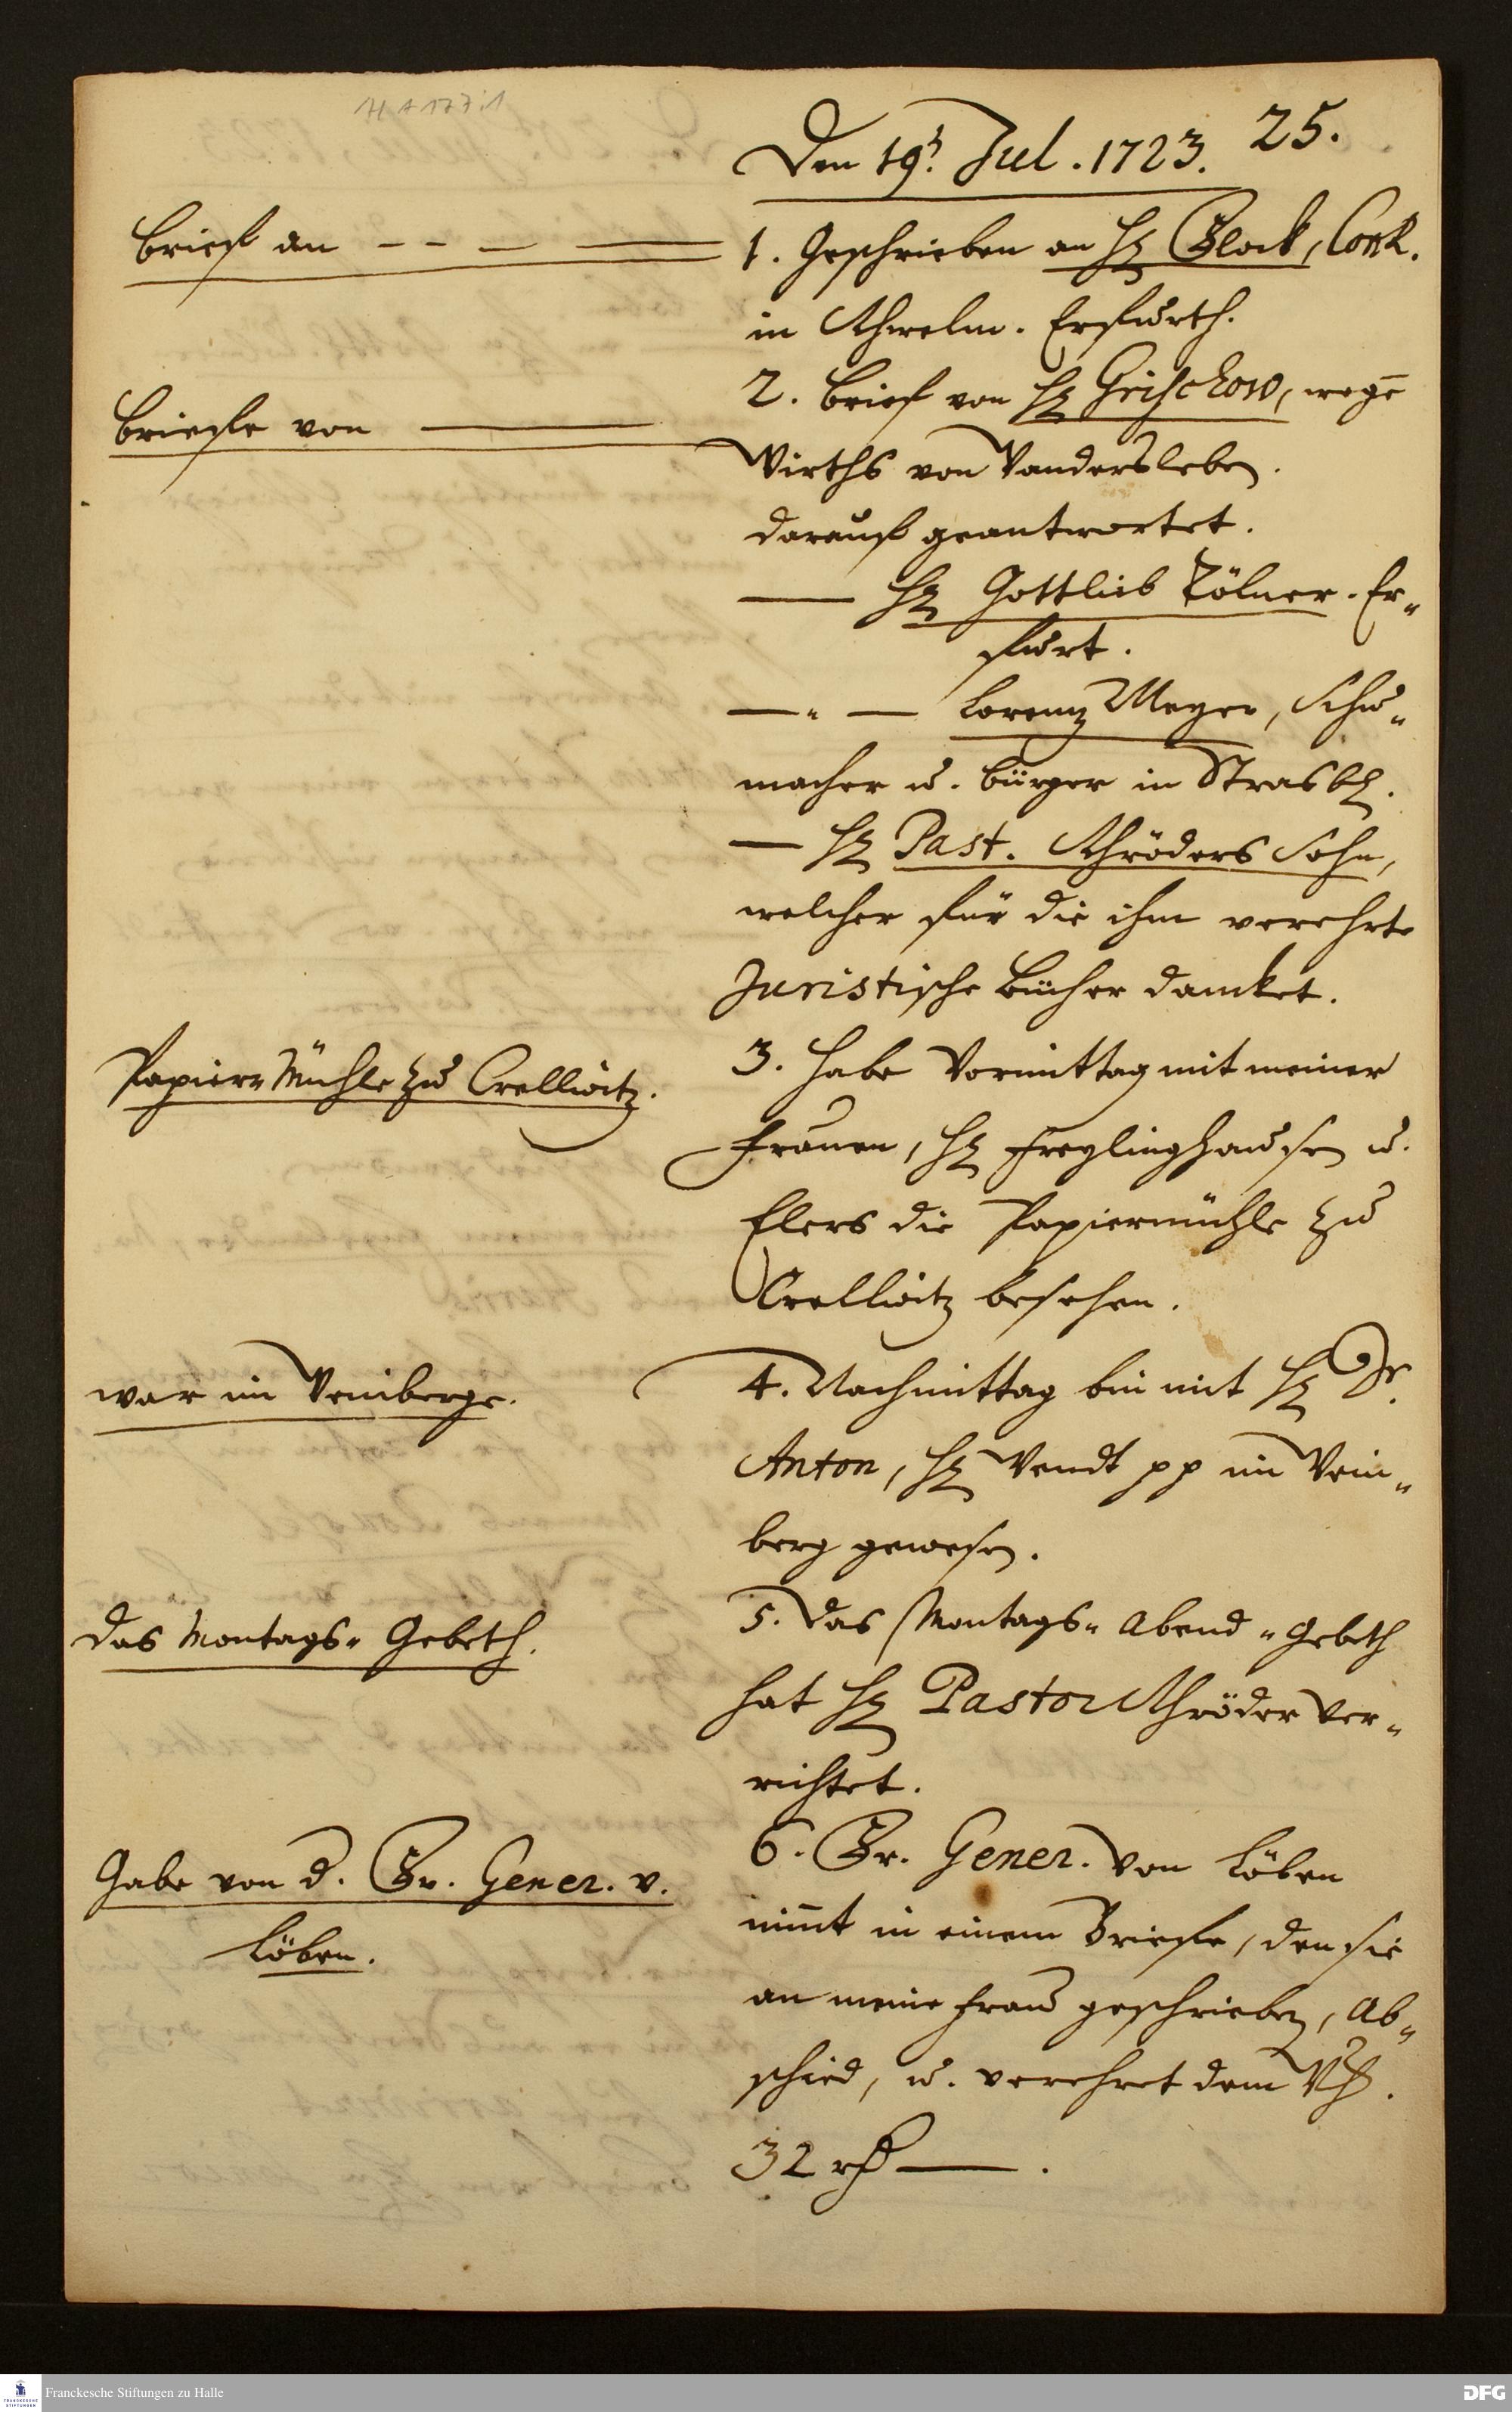 H A 177:1
25.
Den 19t. Jul. 1723.
Brief an
1. Geschrieben an H. Block, ConR.
in Schwelm. Erfurth.
Briefe von
2. Brief von H. Grischow, wegē
Wirths von Vandersleben.
darauf geantwortet.
H. Gottlieb Tölner. Er-
furt.
Lorenz Meyer, Schu-
macher u. Bürger in Strasb.
H. Past. Schröders Sohn,
welcher für die ihm verehrte
Juristische Bücher dancket.
Papier-Mühle zu Crellwitz.
3. Habe Vormittag mit meiner
Frauen, H. Freylinghausen u.
Elers die Papiermühle zu
Crellwitz besehen.
war im Weinberge.
4. Nachmittag bin mit H. Dr.
Anton, H. Wendt pp im Wein-
berg gewesen.
Das Montags-Gebeth.
5. Das Montags-Abend-Gebeth
hat H. Pastor Schröder ver-
richtet.
Gabe von d. Fr. Gener. v.
Löben.
6. Fr. Gener. von Löben
nim̄t in einem Briefe, den sie
an meine Frau geschrieben, Ab-
schied, u. verehret dem Wh.
32 rth
Franckesche Stiftungen zu Halle
DFG